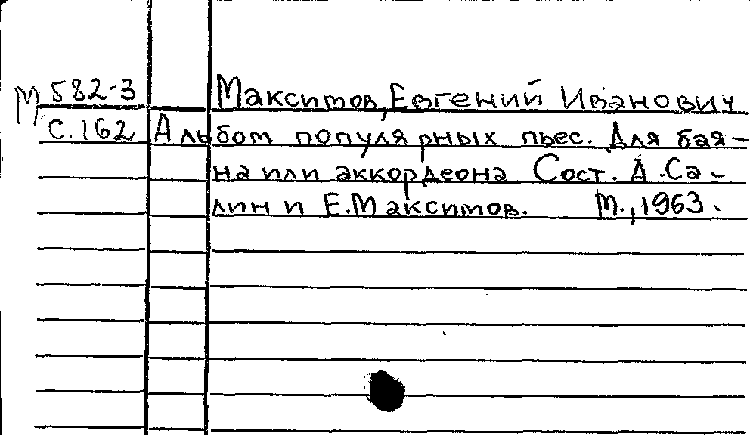 М 582-3 Максимов, Евгений Иванович
С.162 Альбом популярных пьес. Для бая-
на или аккордеона Сост. А.Са-
лин и Е.Максимов. М., 1963.